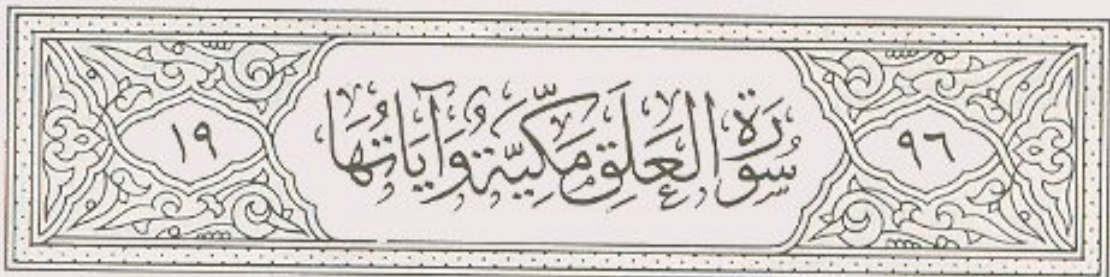 ٩٦ سُورَةُ العَلَقِ مَكِّيَّةٌ وَآيَاتُهَا ١٩